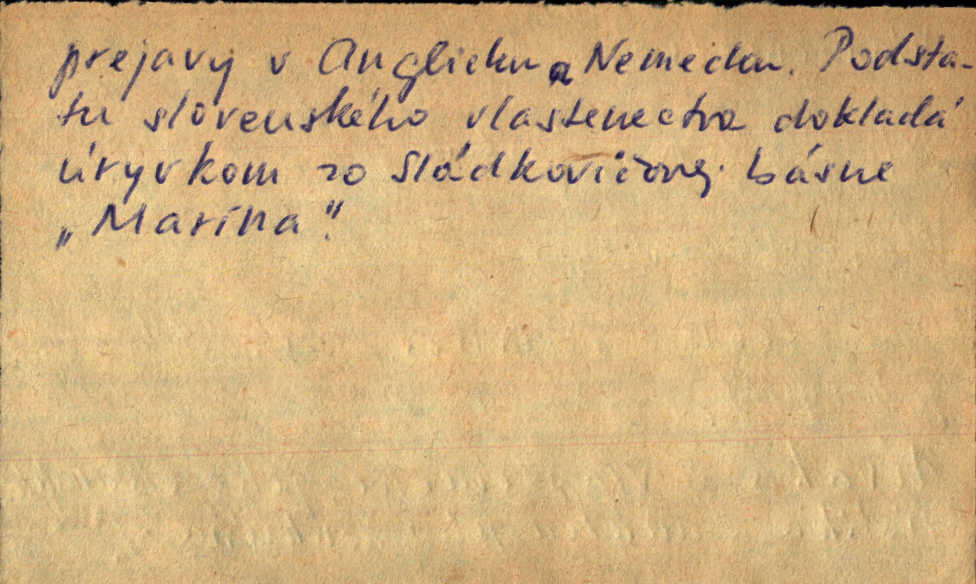 prejavy v Anglicku a Nemecku. Podsta-
tu slovenského vlastenectva dokladá
úryvkom zo Sládkovičovej básne
„Marína".